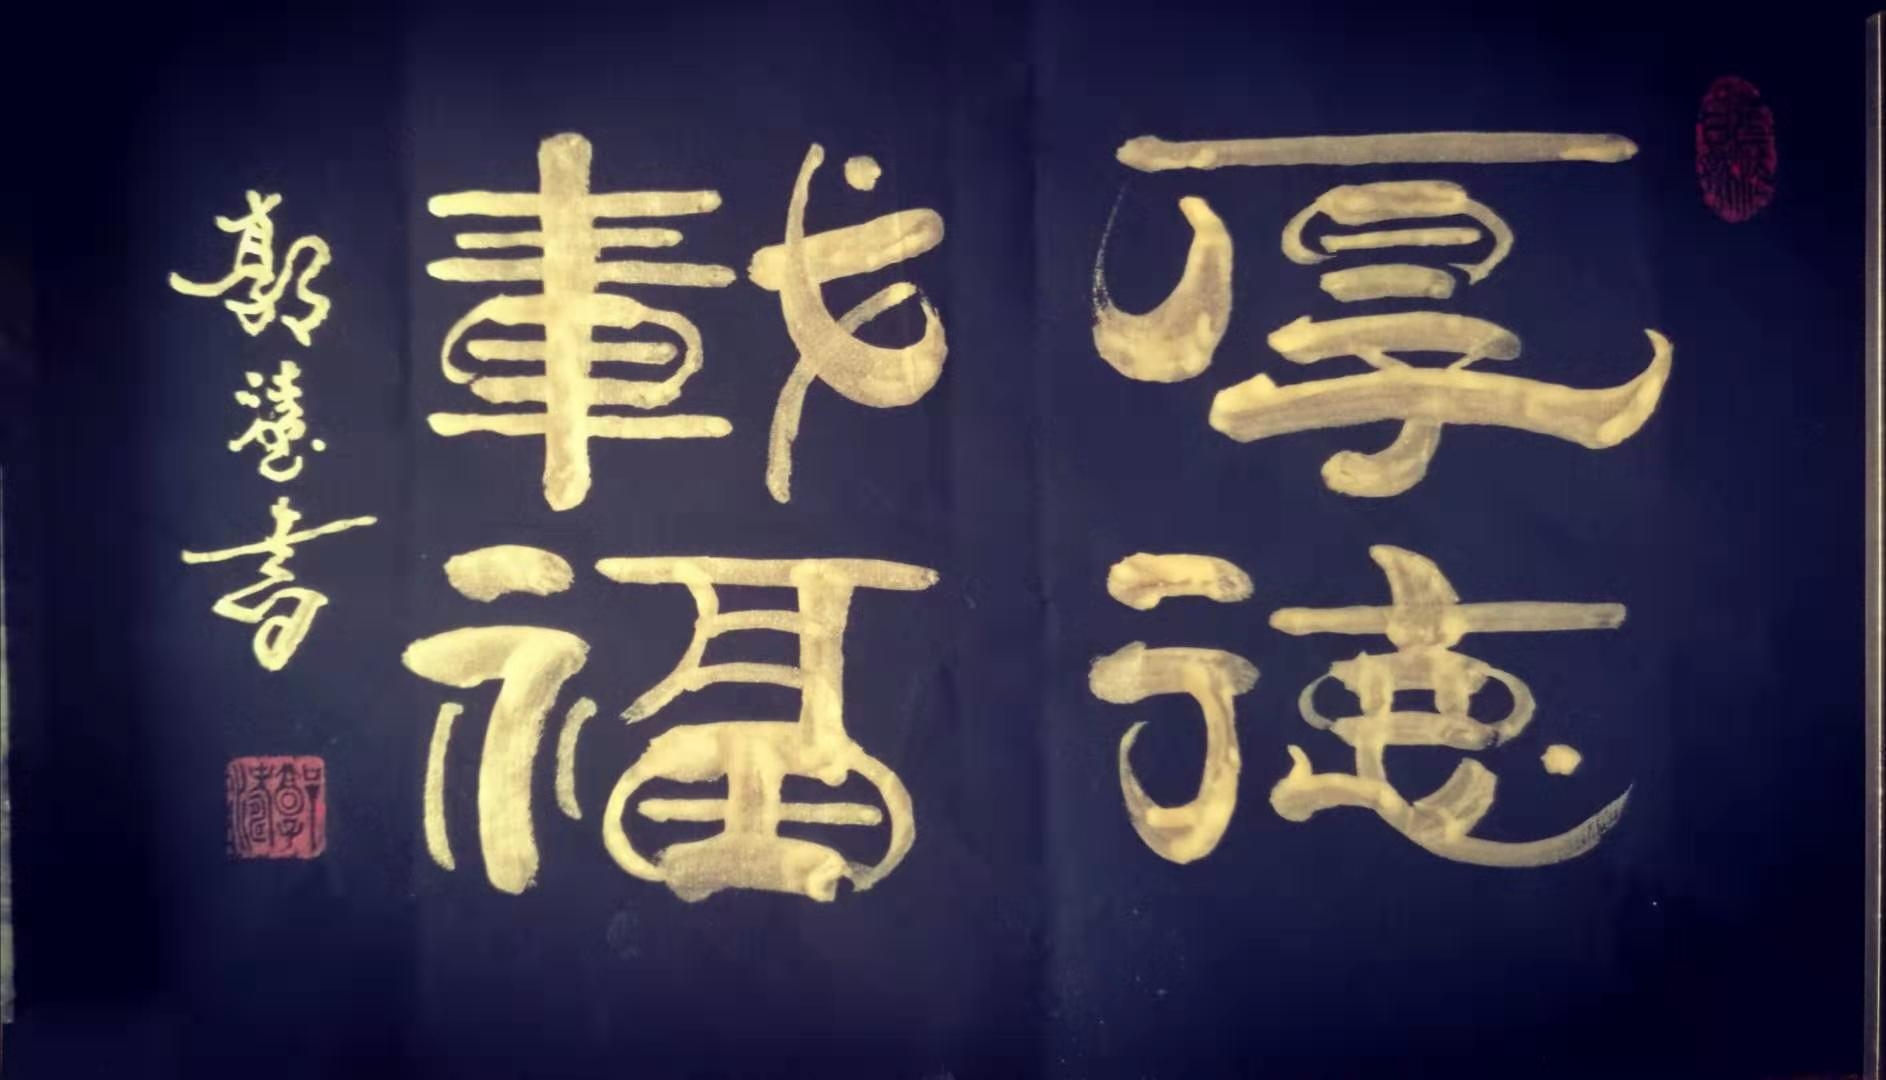 厚德
載福
郭德書